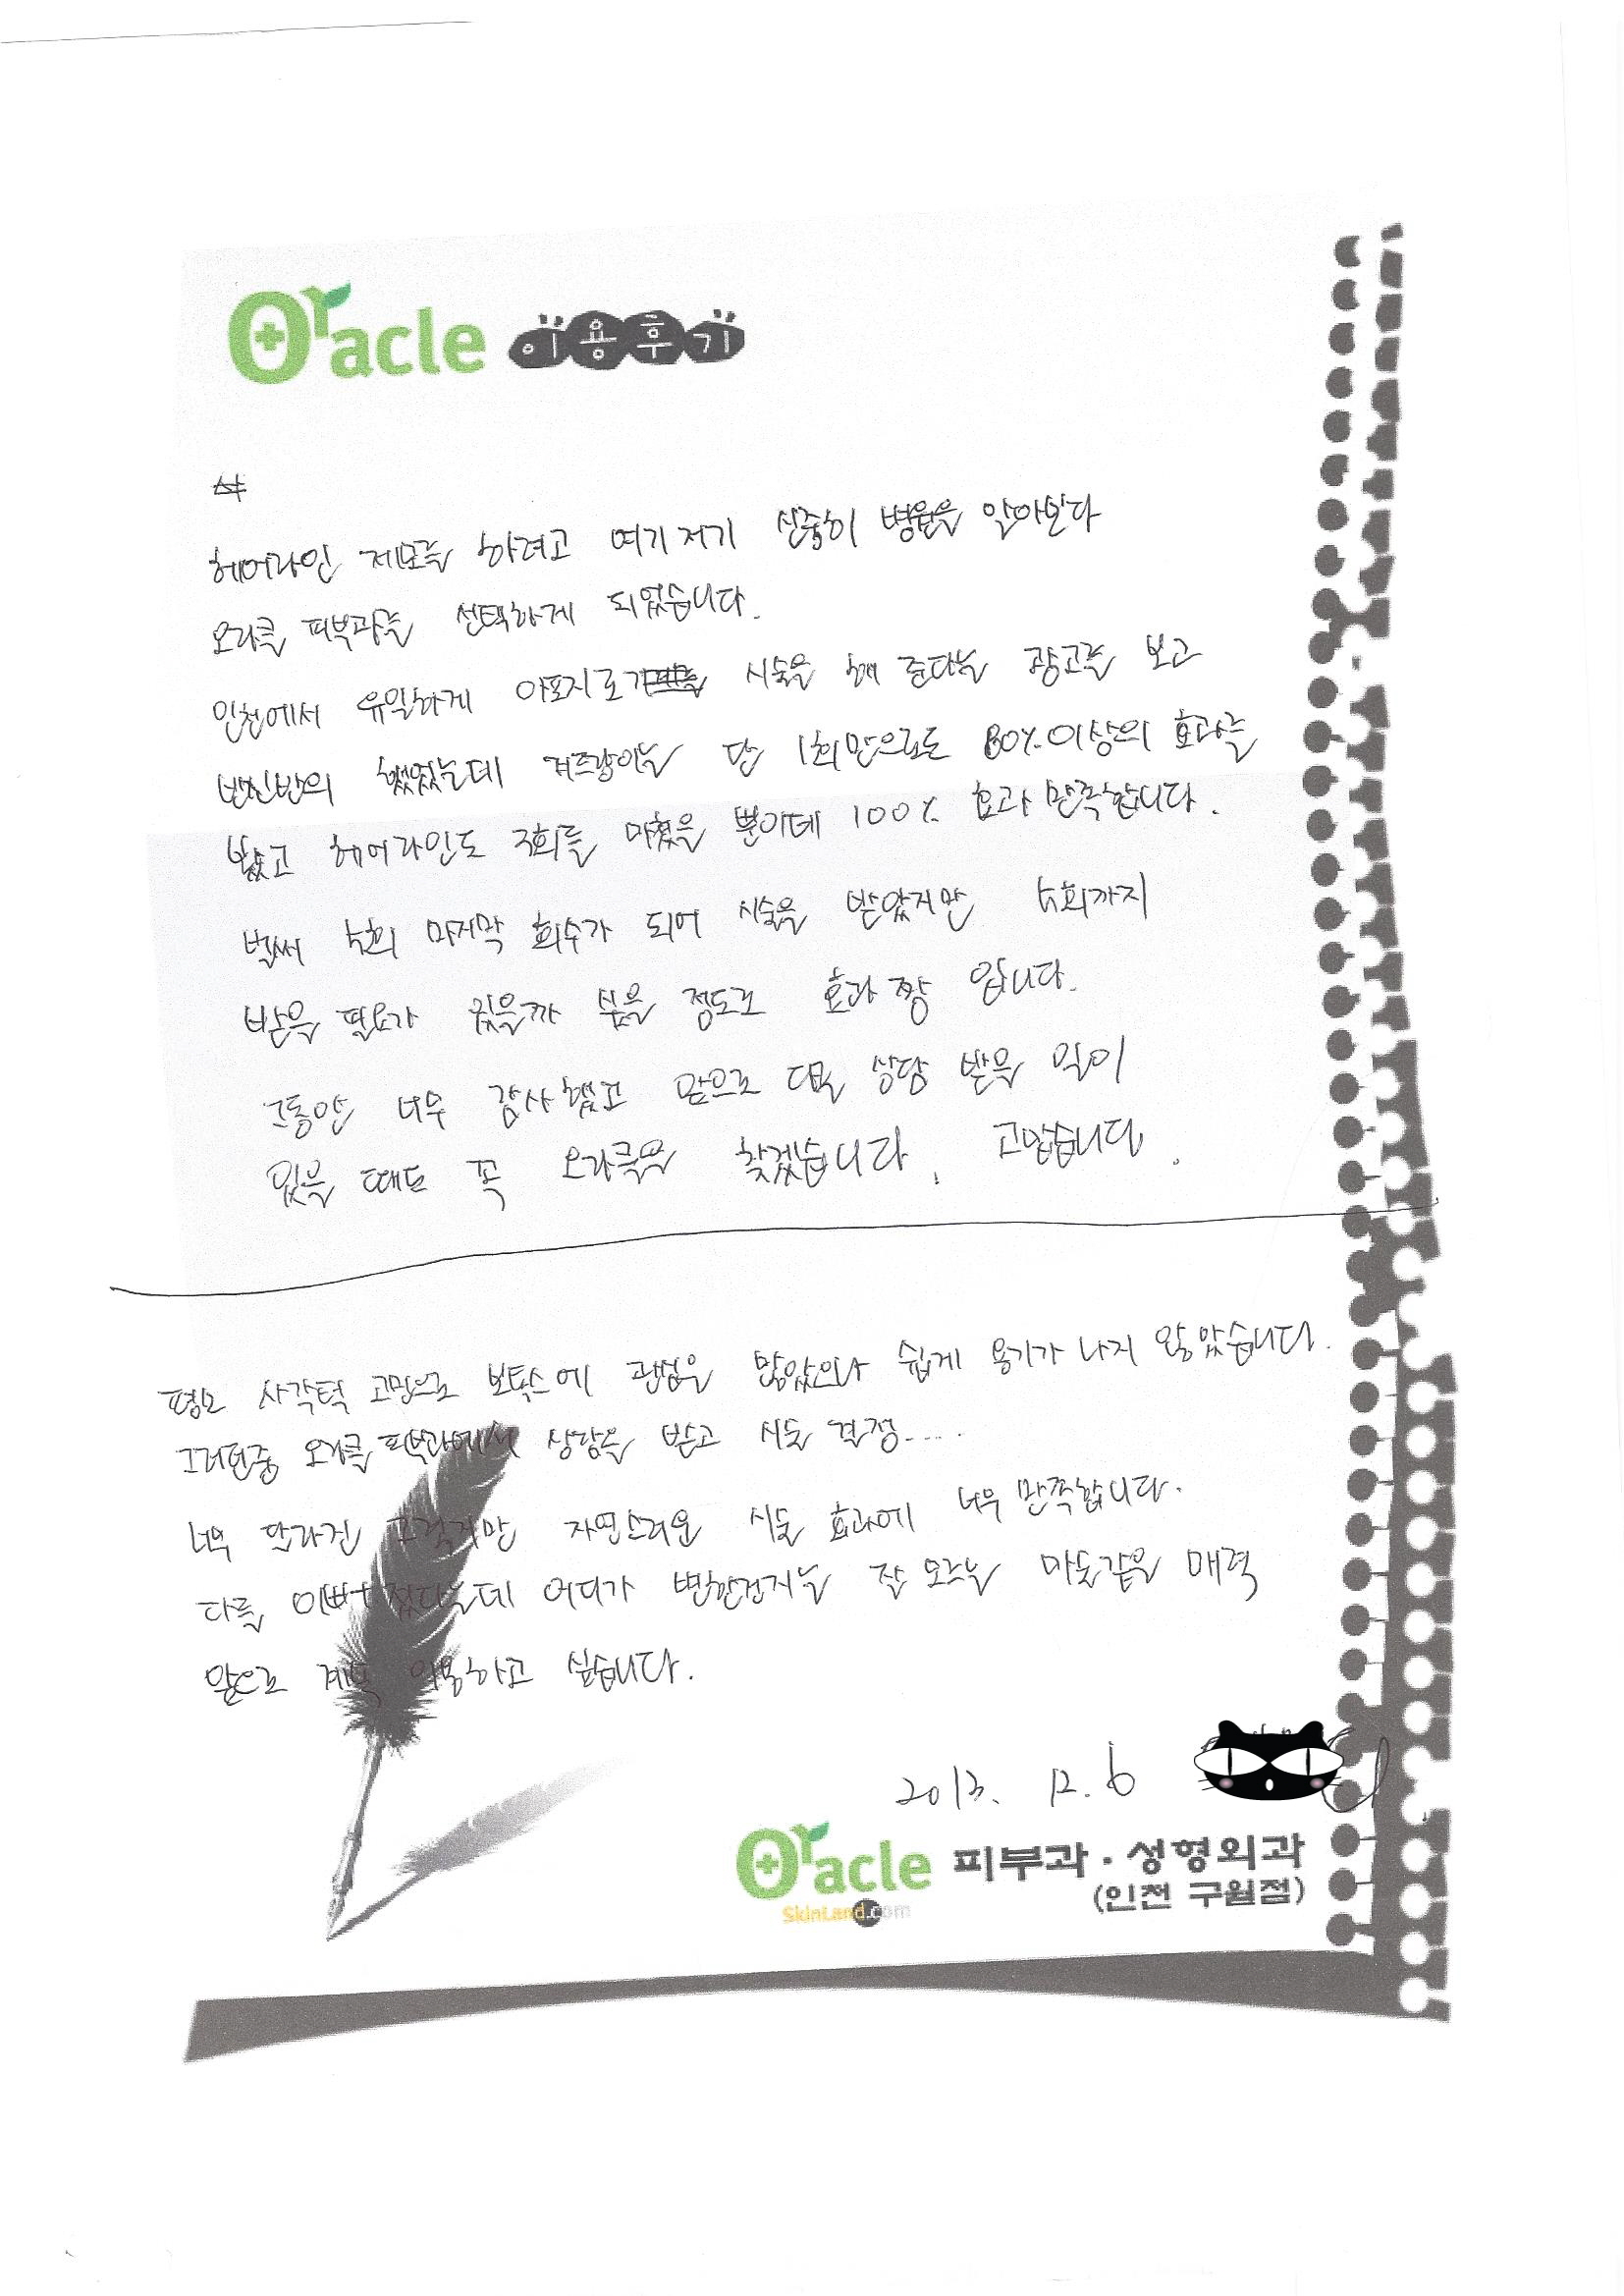 Oracle 이용후기
헤어라인 제모를 하려고 여기저기 신중히 병원을 알아보다
오라클 피부과를 선택하게 되었습니다.
인천에서 유일하게 아포지로 시술을 해 준다는 광고를 보고
반신반의 했었는데 겨드랑이는 단 1회만으로도 80%이상의 효과를
봤고 헤어라인도 3회를 마쳤을 뿐이데 100% 효과 만족합니다.
벌써 5회 마지막 회수가 되어 시술을 받았지만 5회까지
받을 필요가 있을까 싶을 정도로 효과 짱 입니다.
그동안 너무 감사했고 앞으로 다른 상담 받을 일이
있을 때도 꼭 오라클을 찾겠습니다. 고맙습니다.
평소 사각턱 고민으로 보톡스에 관심은 많았으나 쉽게 용기가 나지 않았습니다.
그러던중 오라클 피부과에서 상담을 받고 시술 결정....
너무 달라진 모습지만 자연스러운 시술 효과에 너무 만족합니다.
다들 이뻐졌다는데 어디가 변한건지는 잘 모르는 마술같은 매력
앞으로 계속 이용하고 싶습니다.
2013. 12. 6
Oracle 피부과·성형외과
SkinLand.com (인천 구월점)